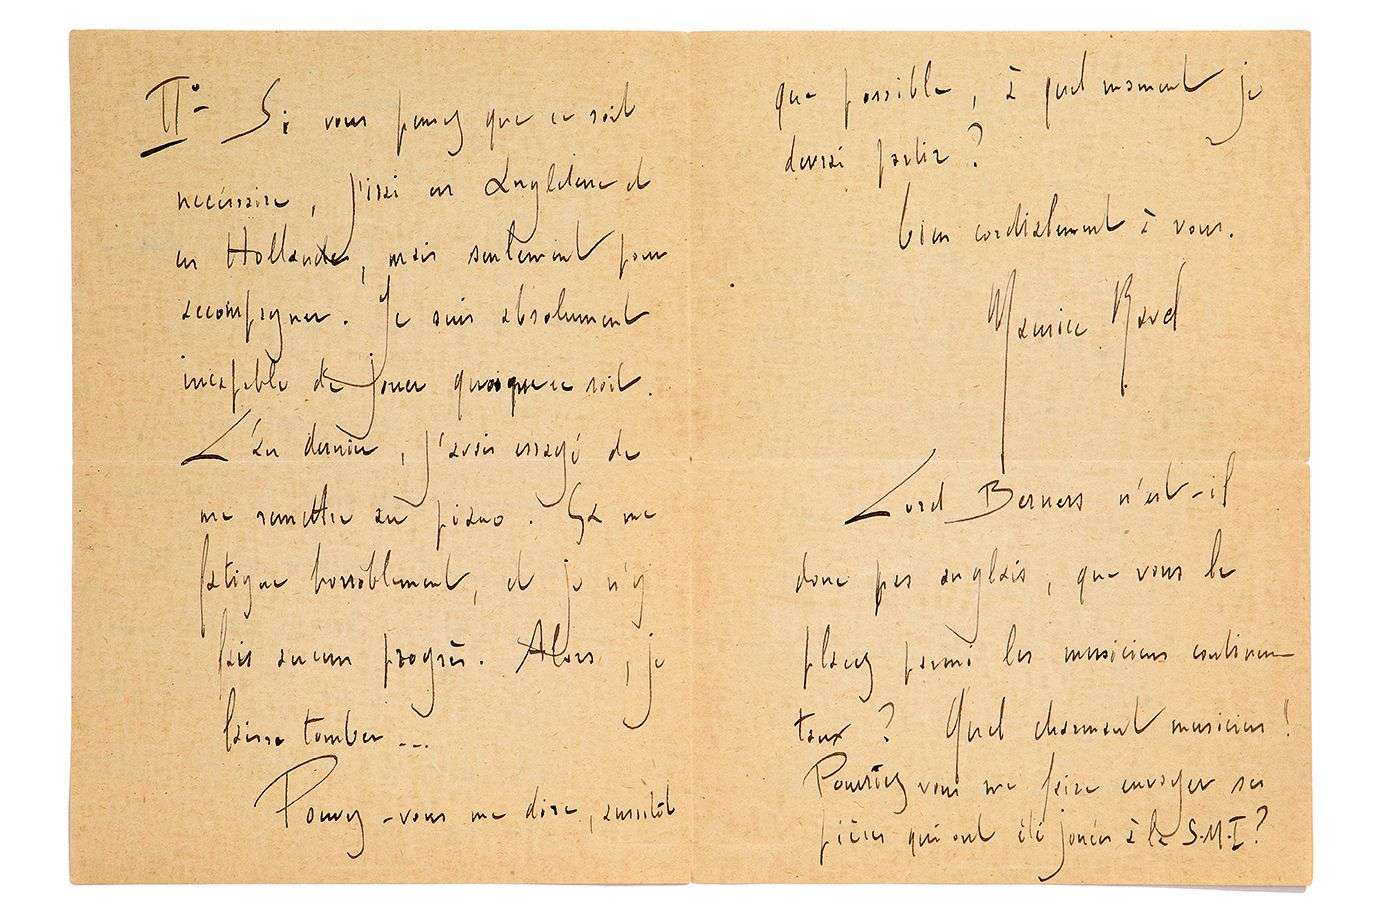 II°- Si vous pensez que ce soit
nécéssaire, j'irai en Angleterre et
en Hollande, mais seulement pour
accompagner. Je suis absolument
incapable de jouer quoique ce soit.
L'an dernier, j'avais essayé de
me remettre au piano. Ça me
fatigue horriblement, et je n'y
fais aucun progrès. Alors, je
laisse tomber...
Pouvez-vous me dire, aussitôt
que possible, à quel moment je
devrai partir?
bien cordialement à vous.
Maurice Ravel
Lord Berners n'est-il
donc pas anglais, que vous le
placez parmi les musiciens continen-
taux? Quel charmant musicien!
Pourriez vous me faire envoyer ses
pièces qui ont été jouées à la S.M.I?